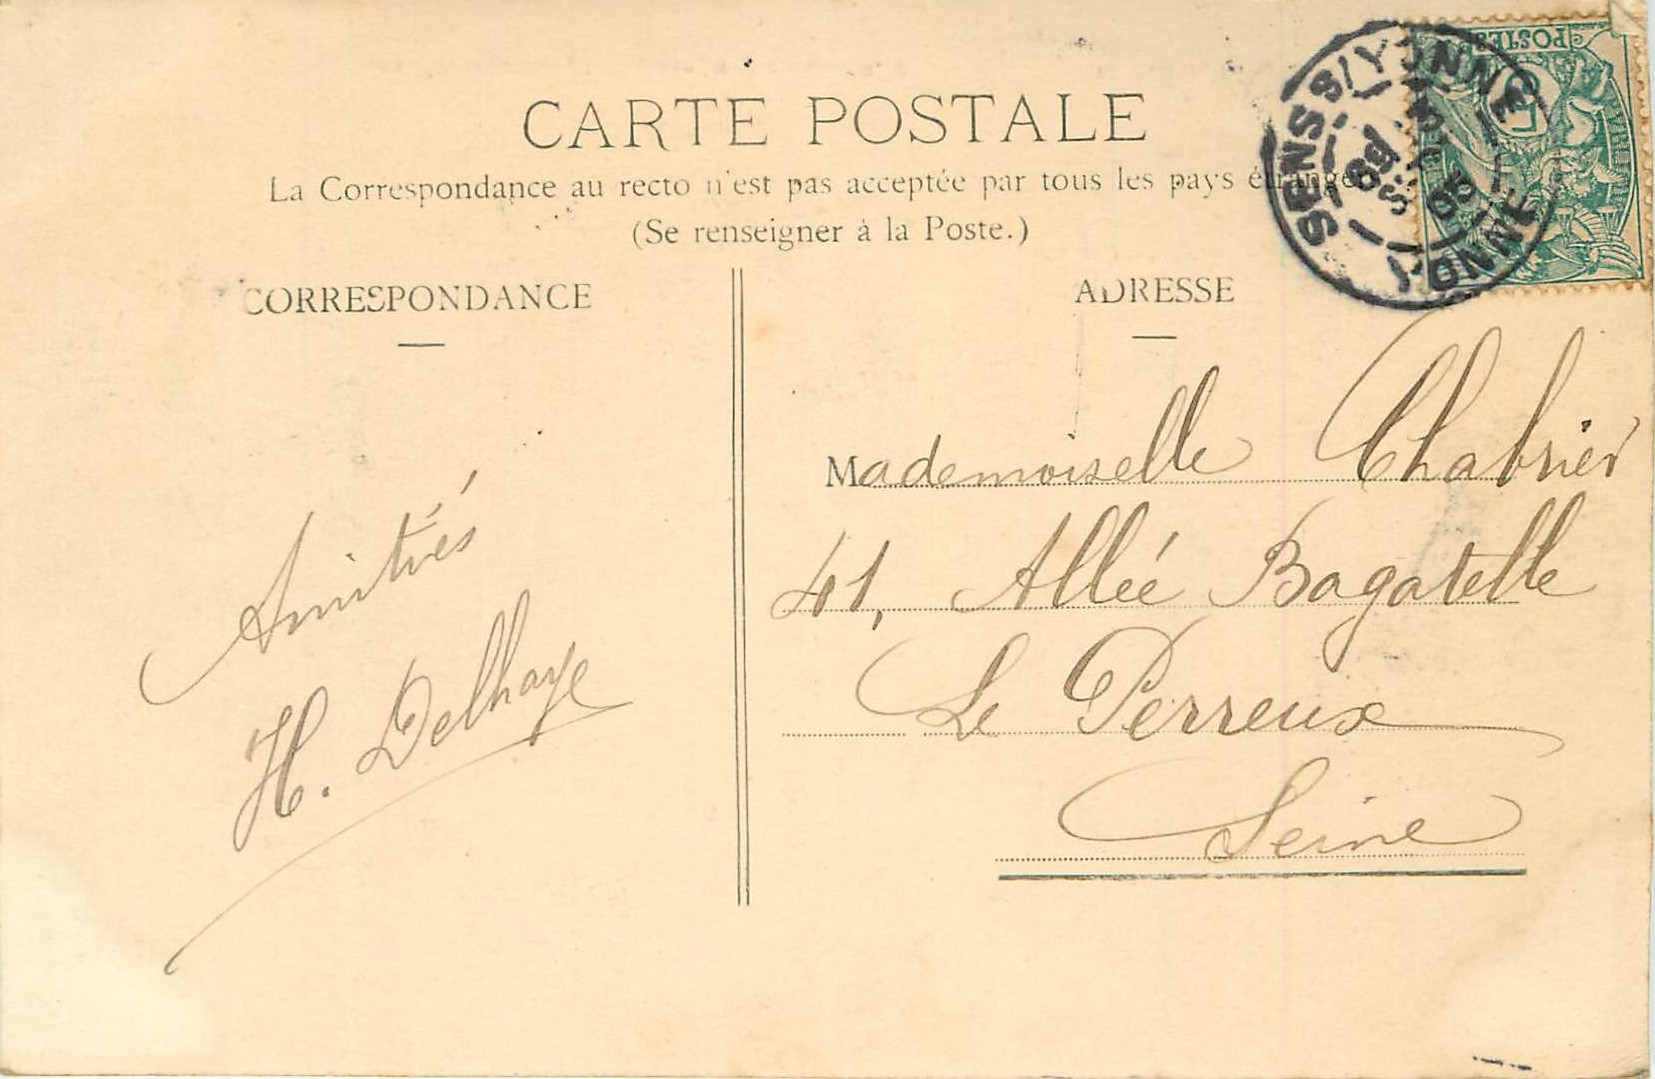 CARTE POSTALE
La Correspondance au recto n'est pas acceptée par tous les pays étrangers
(Se renseigner à la Poste.)
CORRESPONDANCE
ADRESSE
Amitiés
H. Delhaye
Mademoiselle Chabrier
41, Allée Bagatelle
Le Perreux
Seine
SENS S/YONNE
YONNE
POSTES